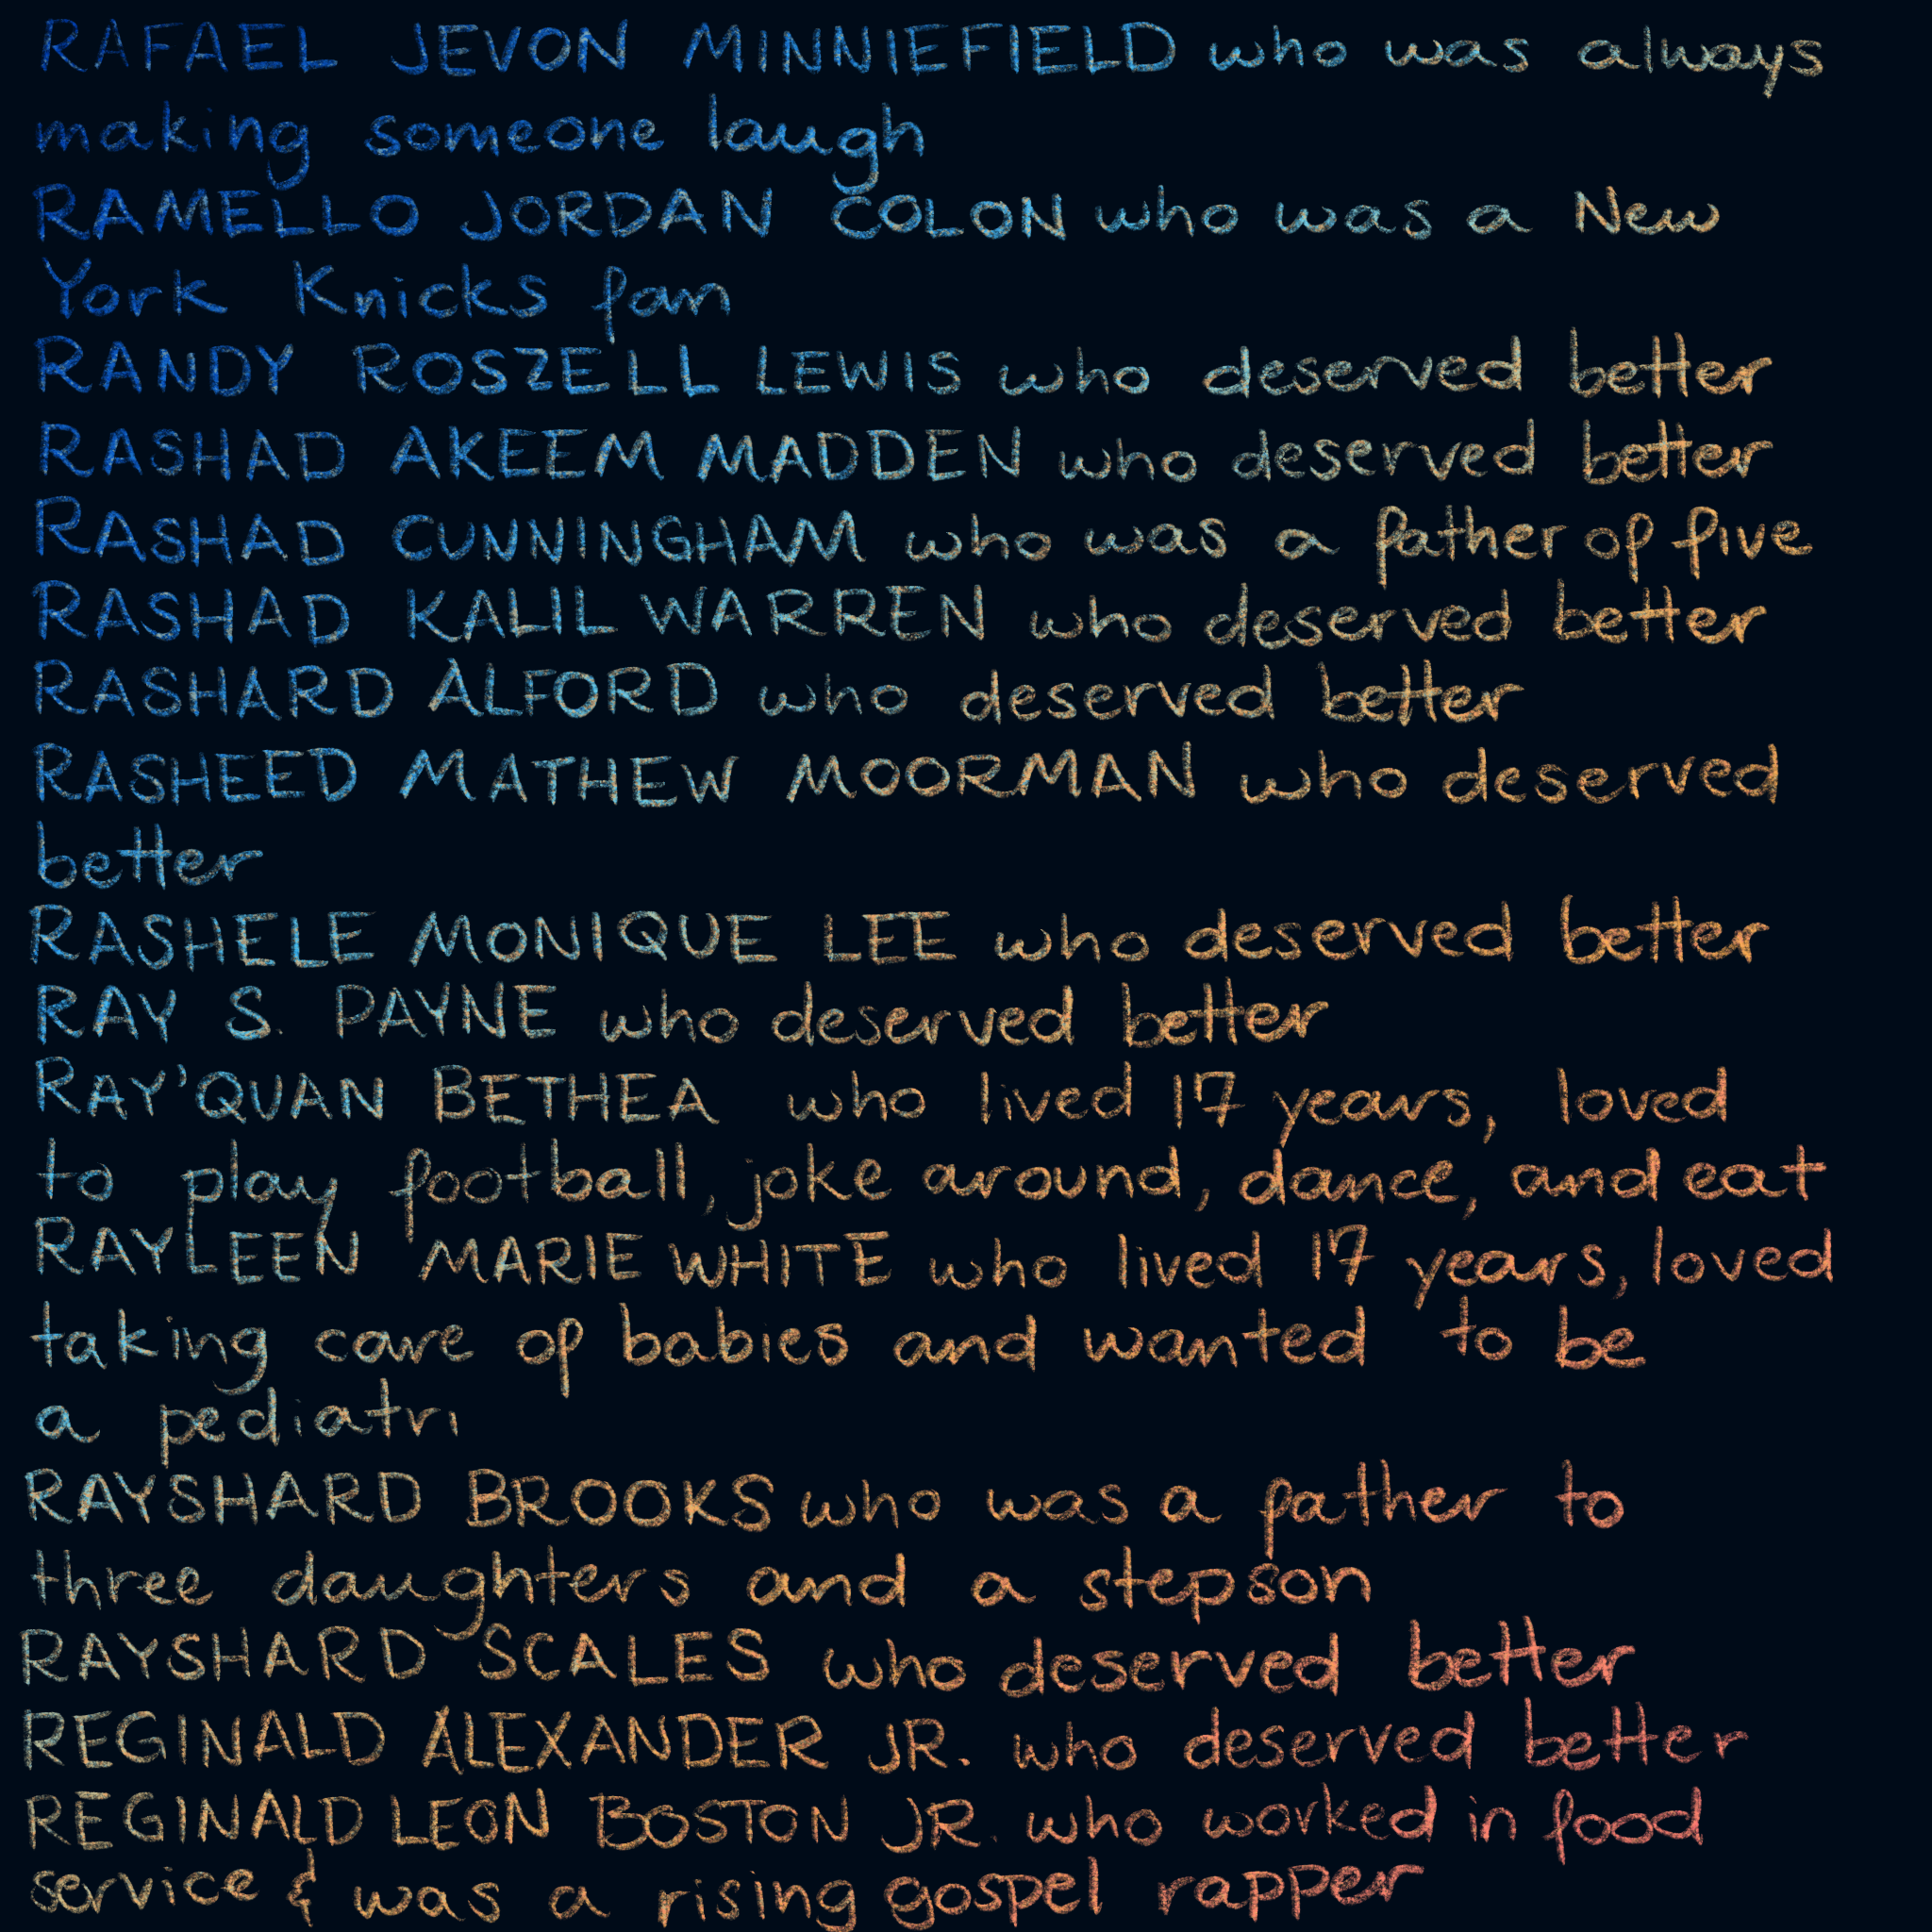 RAFAEL JEVON MINNIEFIELD who was always
making someone laugh
RAMELLO JORDAN COLON who was a New
York Knicks fan
RANDY ROSZELL LEWIS who deserved better
RASHAD AKEEM MADDEN who deserved better
RASHAD CUNNINGHAM who was a father of five
RASHAD KALIL WARREN who deserved better
RASHARD ALFORD who deserved better
RASHEED MATHEW MOORMAN who deserved
better
RASHELE MONIQUE LEE who deserved better
RAY S. PAYNE who deserved better
RAY'QUAN BETHEA who lived 17 years, loved
to play football, joke around, dance, and eat
RAYLEEN MARIE WHITE who lived 17 years, loved
taking care of babies and wanted to be
a pediatri
RAYSHARD BROOKS who was a father to
three daughters and a stepson
RAYSHARD SCALES who deserved better
REGINALD ALEXANDER JR. who deserved better
REGINALD LEON BOSTON JR. who worked in food
service & was a rising gospel rapper